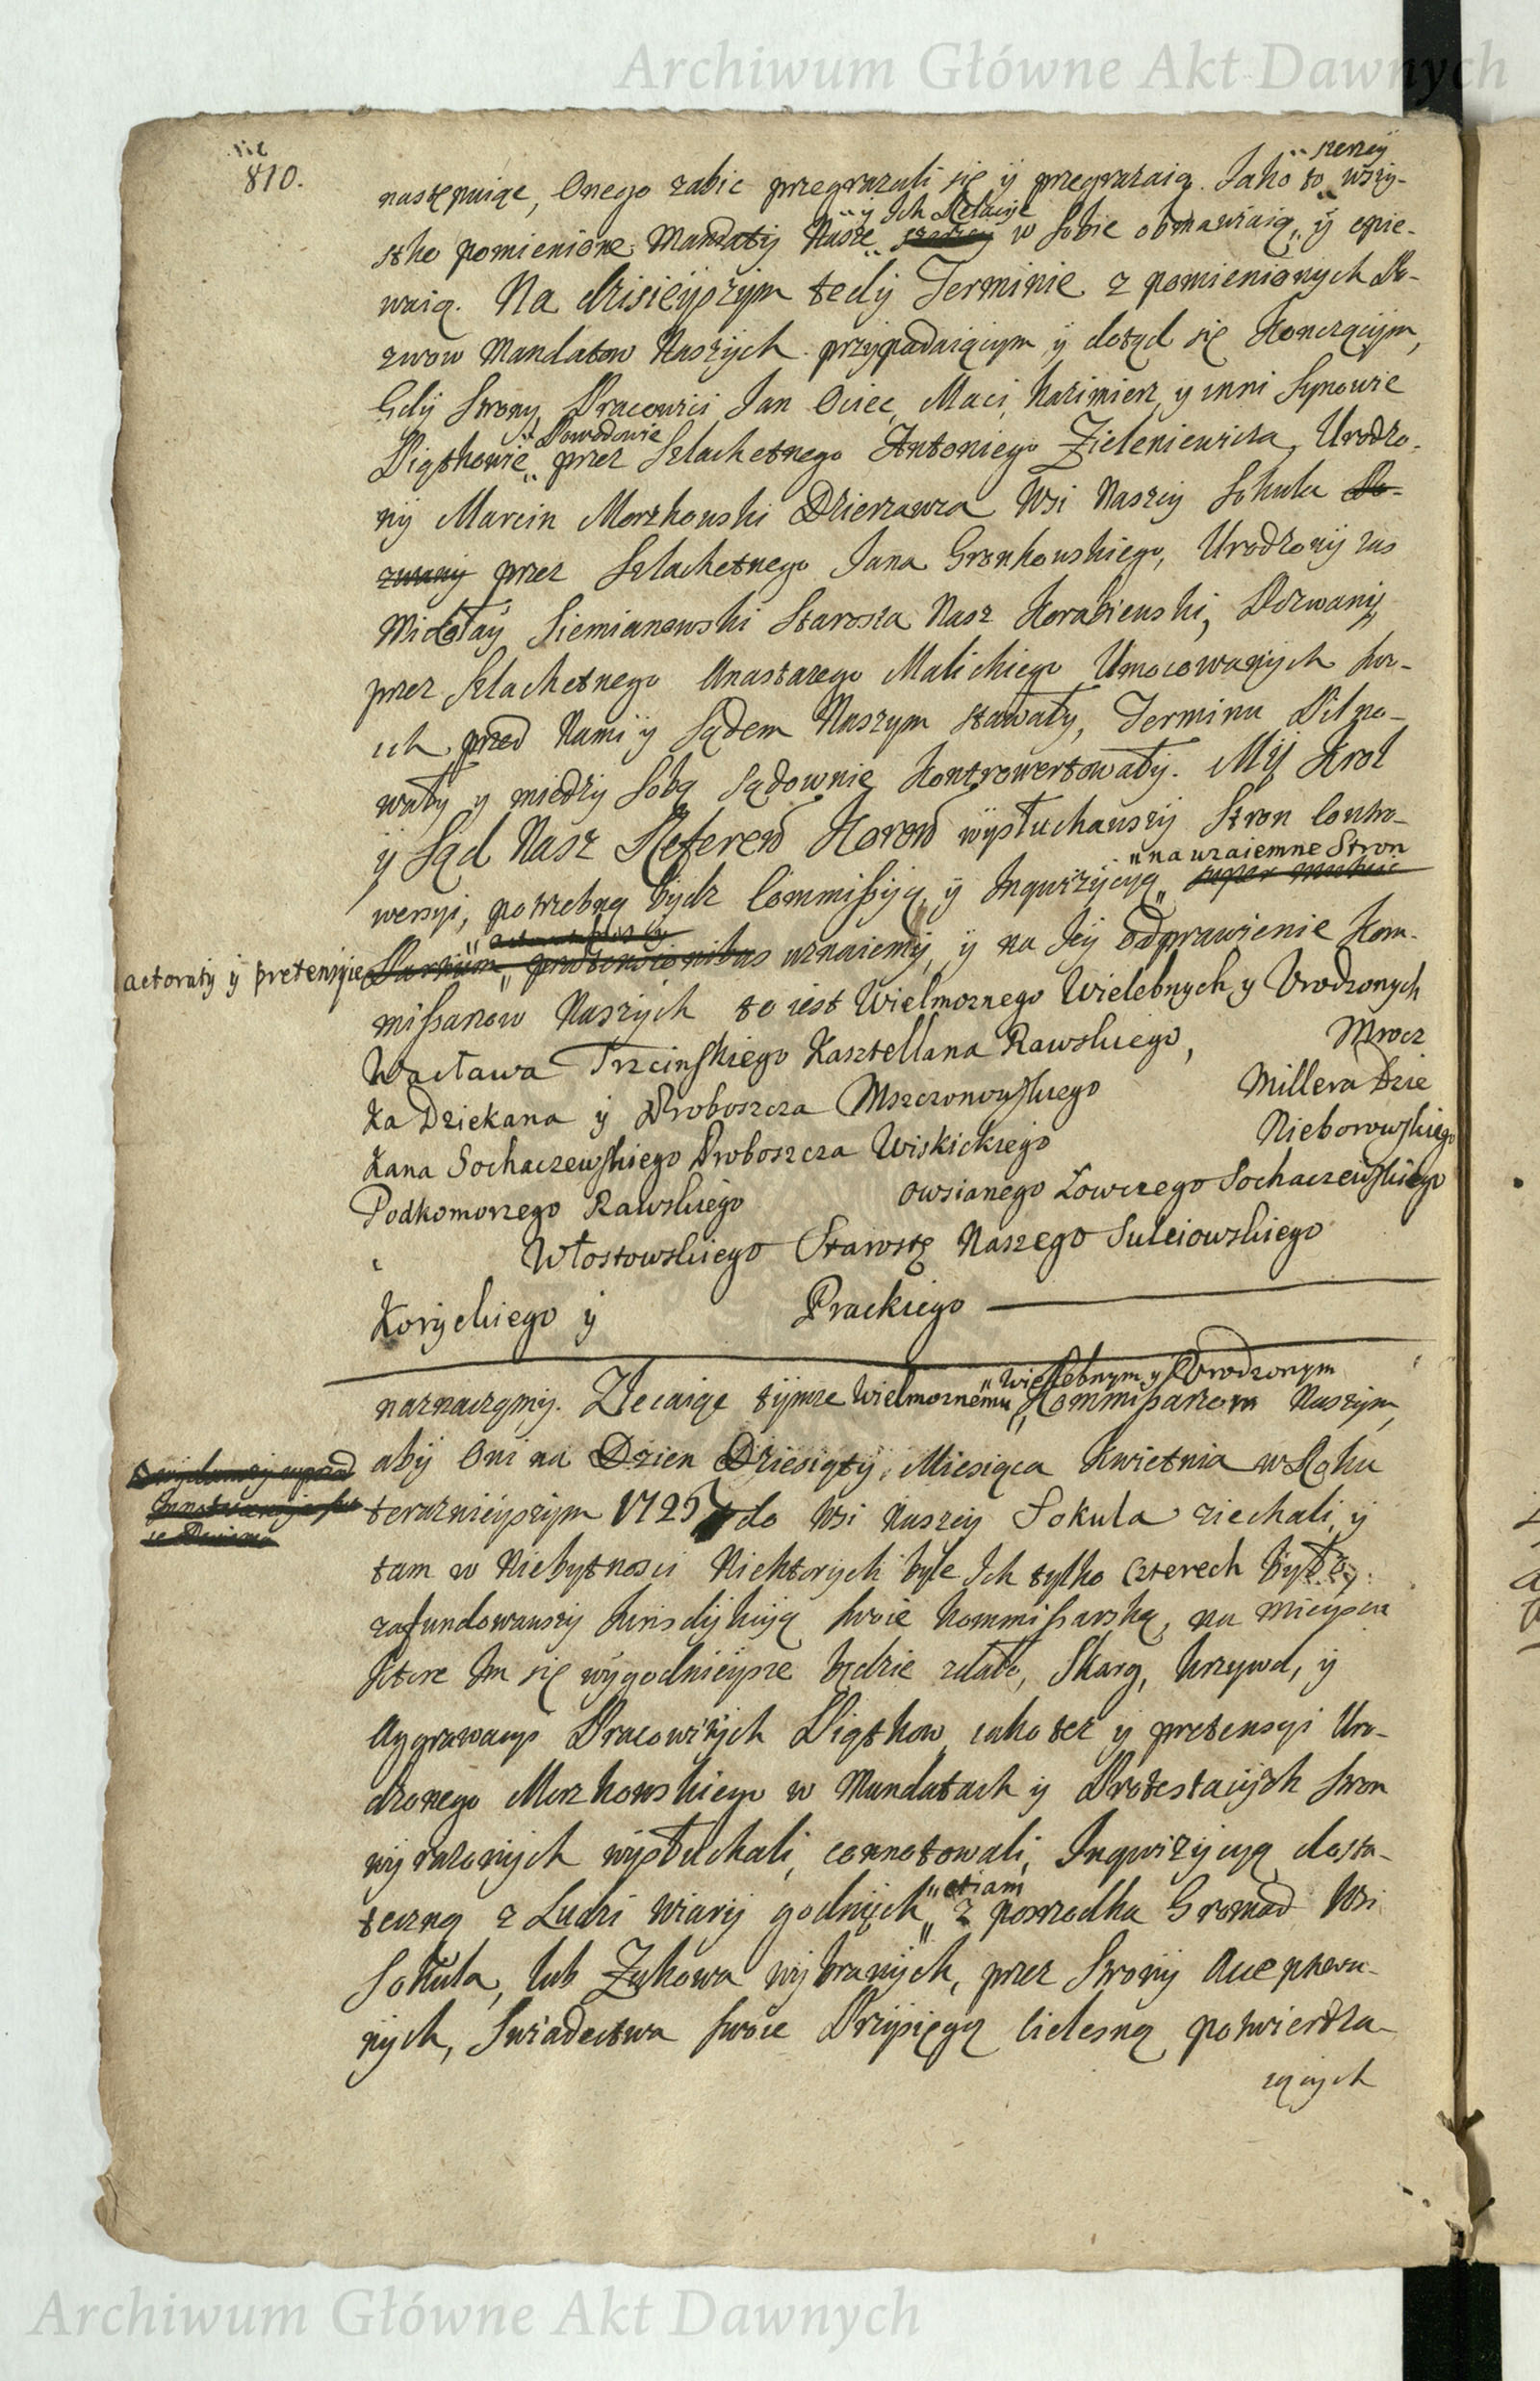 Archiwum Główne Akt Dawnych
810.
nastepuiąc, Onego zabic przegrazali się y przegrazaią. Jako to „szerzey„ wszy-
stko pomienione Mandaty Nasze „y Ich Relacye„ w Sobie obmawiaią, y opie-
waią. Na dzisieyszym tedy Terminie z pomienionych Po-
zwow Mandatow Naszych przypadaiącym y dotąd się Konczącym,
Gdy Strony Pracowici Jan Ociec, Maci, Kazimierz, y inni Synowie
Piątkowie „Powodowie„ przez Szlachetnego Antoniego Zieleniewicza, Urodzo-
ny Marcin Morzkowski Dzierzawca Wsi Naszey Sokula Po-
zwany przez Szlachetnego Jana Gronkowskiego, Urodzony zas
Mikołay Siemianowski Starosta Nasz Korabiewski, Pozwany
przez Szlachetnego Anastazego Malickiego Umocowanych swo-
ich przed Nami y Sądem Naszym stawały, Terminu Pilno-
wały y miedzy Sobą Sądownie Kontrowertowały. My Krol
y Sąd Nasz Referend Koron wysłuchawszy Stron Contro-
wersyi, potrzebną bydz Commissyą y Inqwizycyą „na wzaiemne Stron
actoraty y pretensyie uznaiemy, y na Jey odprawienie Kom-
missarzow Naszych to iest Wielmoznego Wielebnych y Urodzonych
Wacława Trzcinskiego Kasztellana Rawskiego, Mrocz
ka Dziekana y Proboszcza Mszczonowskiego Millera Dzie
kana Sochaczewskiego Proboszcza Wiskickiego Nieborowskiego
Podkomorzego Rawskiego owsianego Łowczego Sochaczewskiego
Włostowskiego Starostę Naszego Suleiowskiego
Koryckiego y Prackiego
naznaczamy. Zlecaiąc tymze Wielmoznemu „Wielebnym y Urodzonym„ Kommissarzom Naszym,
aby Oni na Dzien Dziesiąty Miesiąca Kwietnia w Roku
teraznieyszym 1725 do Wsi Naszey Sokula ziechali, y
tam w Niebytnosci Niektorych byle Ich tylko czterech było,
zafundowawszy Jurisdykcyą swoie Kommissarską, na mieyscu
ktore Im się wygodnieysze będzie zdało, Skarg, krzywd, y
Aggrawacyi Pracowitych Piątkow iako tez y pretensyi Uro-
dzonego Morzkowskiego w Mandatach y Protestacyach Stron
wyrazonych wysłuchali, connotowali, Inqwizycyą dosta-
teczną z Ludzi wiary godnych „etiam„ z posrzodka Gromad Wsi
Sokula, lub Zukowa wybranych, przez Strony Acceptowa-
nych, Swiadectwa swoie Przysięgą cielesną potwierdza-
iących
Archiwum Główne Akt Dawnych